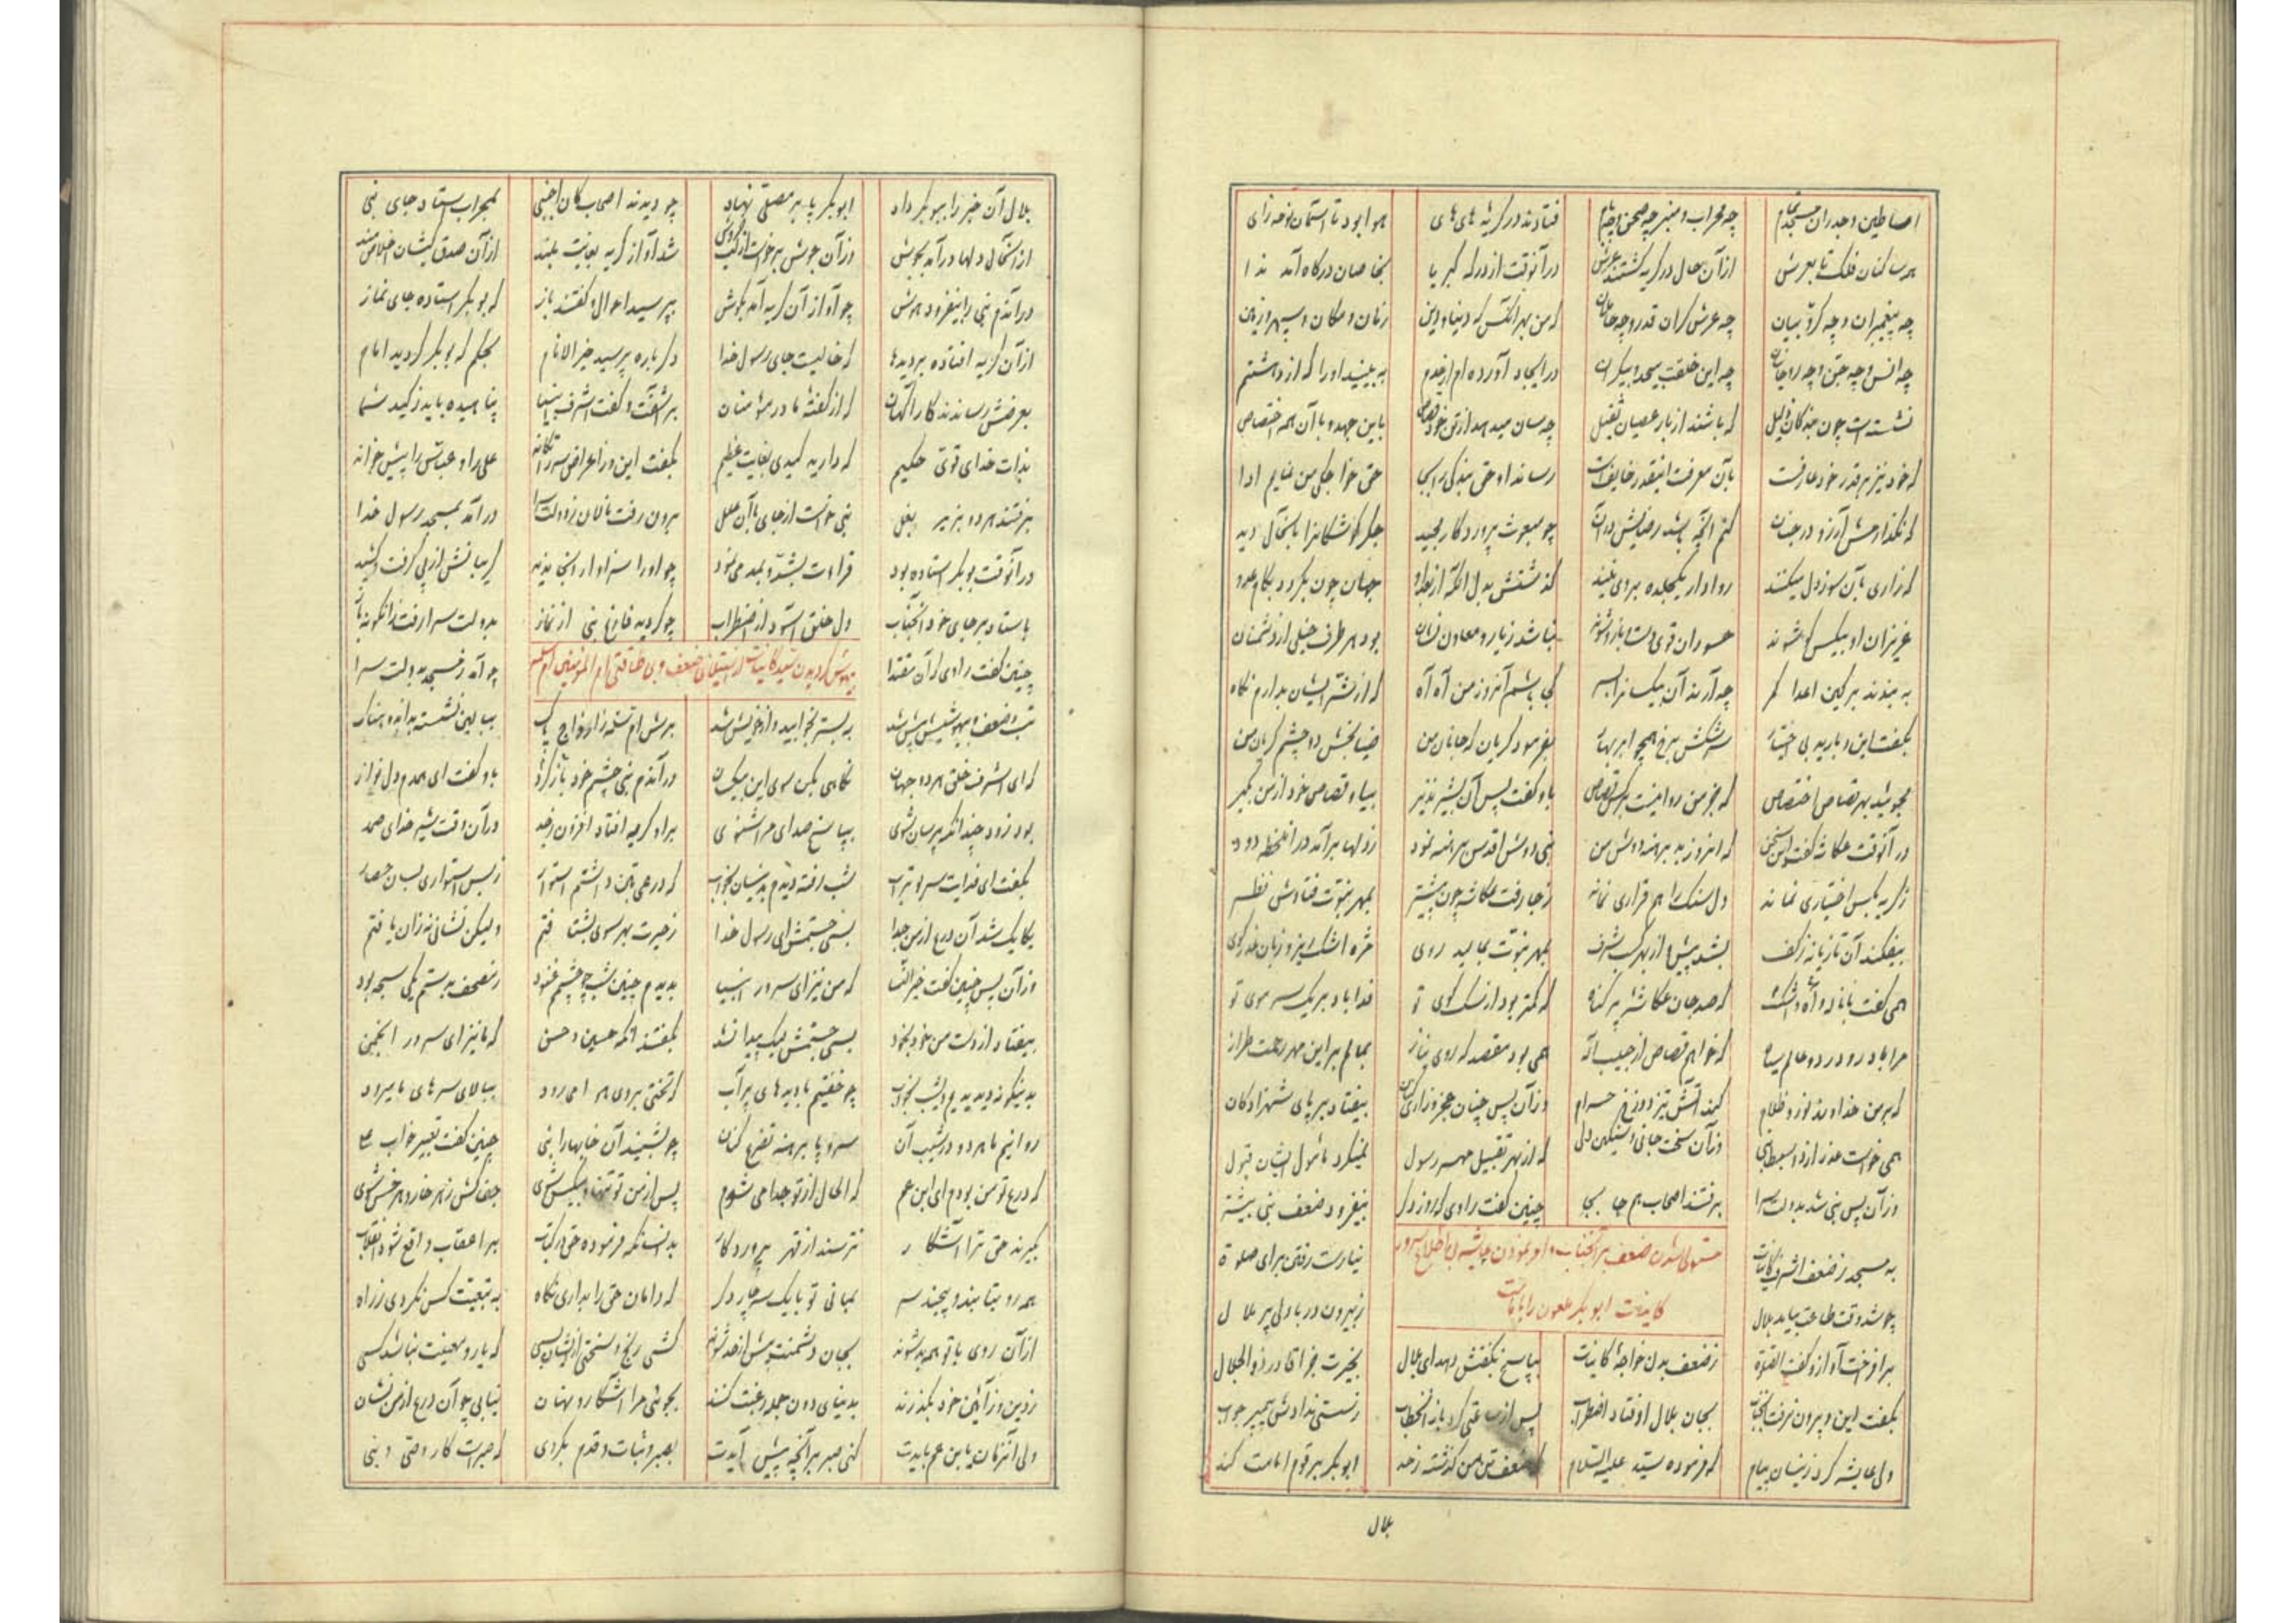 اساطین و جدران مسجد تمام چه محراب و منبر چه صحن و چه بام فتادند در گریه های های هوا بود تا آسمان نوحه زای
همه ساکنان فلک تا بعرش از آن حال در گریه گشتند عرش در آنوقت از درگه کبریا بخاصان درگاه آمد ندا
چه پیغمبران و چه کروبیان چه عرش گران قدر و چه حاملان که من بهر آنکس که دنیا و دین زمان و مکان و سپهر و زمین
چه انس و چه جن و چه روحانیان چه این خلقت بیحد و بیکران در ایجاد آورده ام از عدم به بینید او را که از داشتم
نشسته است چون بندگان ذلیل که باشند از بار عصیان ثقیل چه سان میدهد از تن خود قصاص باین جهد و با آن همه اختصاص
که خود نیز بر قدر خود عارفست بآن معرفت اینقدر خایفست رساند او حق بندگی را بجا حق خواجگی من نمایم ادا
که نگذارمش آرزو در جنان کنم آنچه باشد رضایش در آن چو مبعوث پروردگار مجید جگر گوشگانرا باینحال دید
که زاری بآن سوز دل میکنند روا دار یکجلده بر وی نیند گذشتش بدل آنکه از بعد او جهان چون بگردد بکام عدو
عزیزان او بیکس شوند حسودان قوی دست بازو شوند نباشد ز یار و معاون نشان بود هر طرف خیلی از دشمنان
به بندند بر کین اعدا کمر چه آرند آن بیکسانرا بسر کی باشم آنروز من آه آه که از شر ایشان بدارم نگاه
بگفت این و بارید بی اختیار سرشکش برخ همچو ابر بهار بفرمود گریان که جانان من ضیا بخش دو چشم گریان من
مجوئید بهر قصاص اختصاص که جز من روا نیست بر کس قصاص باو گفت پس آن بشیر نذیر بیا و قصاص خود از من بگیر
در آنوقت عکاشه گفت این سخن که آنروز بد برهنه دوش من نبی دوش اقدس برهنه نمود ز دلها بر آمد در آنلحظه دود
ز گریه بکس اختیاری نماند دل سنگ را هم قراری نماند ز جا رفت عکاشه چون پیشتر بمهر نبوت فتادش نظر
بیفکند آن تازیانه ز کف بشد پیش از بهر کسب شرف بمهر نبوت بمالید روی مژه اشک ریز و زبان عذر گوی
همی گفت با ناله و آه و اشک که صد جان عکاشه پر گناه که کمتر بود از سگ کوی تو فدا باد بر یک سر موی تو
مرا باد رو در دو عالم سیاه که خواهم قصاص از حبیب اله همی بود مقصد که روی نیاز بمالم بر این مهر رحمت طراز
که بر من خداوند نور و ظلام کند آتش تیز دوزخ حرام وز آن پس چنان عجز و زاری کنان بیفتاد بر پای شهزادگان
همی خواست عذر از دو سبط نبی وز آن سخت جانی و سنگین دلی که از بهر تقبیل مهر رسول نمیکرد مأمول ایشان قبول
وز آن پس نبی شد بدولت سرا برفتند اصحاب هم جا بجا چنین گفت راوی که روز دگر بیفزود ضعف نبی بیشتر
مستولی شدن ضعف بر آنجناب و امر نمودن عایشه بی اطلاع سرور
کاینات ابوبکر ملعون را بامامت
به مسجد ز ضعف اشرف کاینات نیارست رفتن برای صلوة
چو شد وقت طاعت بیامد بلال ز بیرون در با دلی پر ملال
برافروخت آواز و گفت الصلوة ز ضعف بدن خواجه کاینات بپاسخ نگفتش دهد ای بلال بخیرت جزا قادر ذوالجلال
بگفت این و بیرون نرفت آنجناب بجان بلال اوفتاد اضطراب پس از ساعتی کرد باز آنخطاب ز سستی ندادش پیمبر جواب
ولی عایشه کرد زینسان پیام که فرموده سید علیه السلام که ضعف تن من گذشته ز حد ابوبکر بر قوم امامت کند
بلال
بلال آن خبر را ببوبکر داد ابوبکر پا بر مصلی نهاد چو دیدند اصحاب کان اجنبی بمحراب استاد جای نبی
از آنحال دلها درآمد بجوش وز آن جوش برخواست از کسب خروش شد آواز گریه بغایت بلند از آن صدق کیشان اخلاصمند
در آندم نبی را بیفزود هوش چو آواز آن گریه آمد بگوش بپرسید احوال و گفتند باز که بوبکر استاده جای نماز
از آن گریه افتاده بر دیدها که خالیست جای رسول خدا دگر باره پرسید خیر الانام بحکم که بوبکر گردید امام
بعرضش رساندند کار آگهان که از گفته مادر مؤمنان برآشفت و گفت اشرف انبیا پناهیده باید ز کید شما
بذات خدای قوی حکیم که دارید کیدی بغایت عظیم بگفت این و ز اعراض سر را تکاند علی را و عباس را پیش خواند
برفتند هر دو بزیر بغل نبی خواست از جای با آن علل برون رفت نالان ز دولت سرا درآمد بمسجد رسول خدا
در آنوقت بوبکر استاده بود قرائت بشد و بمد می نمود چو او را سزاوار آنجا ندید گریبانش از پی گرفت و کشید
باستاد بر جای خود آنجناب دل خلق آسود از اضطراب چو گردید فارغ نبی از نماز بدولت سرا رفت زانگونه باز
بیهوش گردیدن سید کاینات از استیلای ضعف و بی طاقتی ام المؤمنین ام سلمه
چنین گفت راوی که آن مقتدا چو آمد ز مسجد بدولت سرا
تب و ضعف و بیهوشیش بیش شد به بستر بخوابید و از خویش شد برش ام سلمه ز ازواج پاک ببالین نشسته باندوهناک
که ای اشرف خلق هر دو جهان نگاهی بکن سوی این بیکسان در آندم نبی چشم خود باز کرد باو گفت ای همدم دل نواز
بود زود چندانکه پرسان شوی بپاسخ صدای مرا نشنوی براو گریه افتاد افزون ز حد در آن وقت شیر خدای صمد
بگفت ای فدایت سر بو تراب بشب رفته دیدم بدینسان بخواب که درعی بتن داشتم استوار ز بس استواری بسان حصار
یکایک شد آن درع از من جدا بسی جستمش ای رسول خدا ز حیرت بهر سوی بشتافتم ولیکن نشانی نه زان یافتم
وز آن پس چنین گفت خیر النسا که من نیز ای سرور انبیا بدیدم چنین شب چو چشمم غنود ز مصحف بدستم یکی سیجه بود
بیفتاد از دست من خود بخود بسی جستمش لیک پیدا نشد بگفتند آنگه حسین و حسن که ما نیز ای سرور انجمن
بدینگونه دیدیم دیشب بخواب چو خفتیم با دیده های پر آب که تختی بروی هوا می رود ببالای سرهای ما میرود
روانیم ما هر دو در شیب آن سر و پا برهنه تضرع کنان چو بشنید آن خوابها را نبی چنین گفت تعبیر خواب علی
که درع تو من بودم ای ابن عم که الحال از تو جدا می شوم پس از من تو تنها و بیکس شوی جفا کش ز هر خار و هر خس شوی
بگیرند حق ترا آشکار نترسند از قهر پروردگار بدانسانکه فرموده حق در کتاب بر اعقاب واقع شود انقلاب
همه رو بتابند و پیچند سر بمانی تو با یک سه چار دگر که دامان حق را بداری نگاه به تبعیت کس نگردی ز راه
از آن روی با تو همه بد شوند بجان دشمنت بیش از حد شوند کشی رنج و سختی از ایشان بسی که یار و معینت نباشد کسی
ز دین و ز آئین خود بگذرند بدنیای دون جمله رغبت کنند بجوئی مرا آشکار و نهان نیابی چو آن درع از من نشان
ولی آنزمان یا بن عم بایدت کنی صبر بر آنچه پیش آیدت بصبر و ثبات و قدم بگروی که صبرست کار وصی و نبی